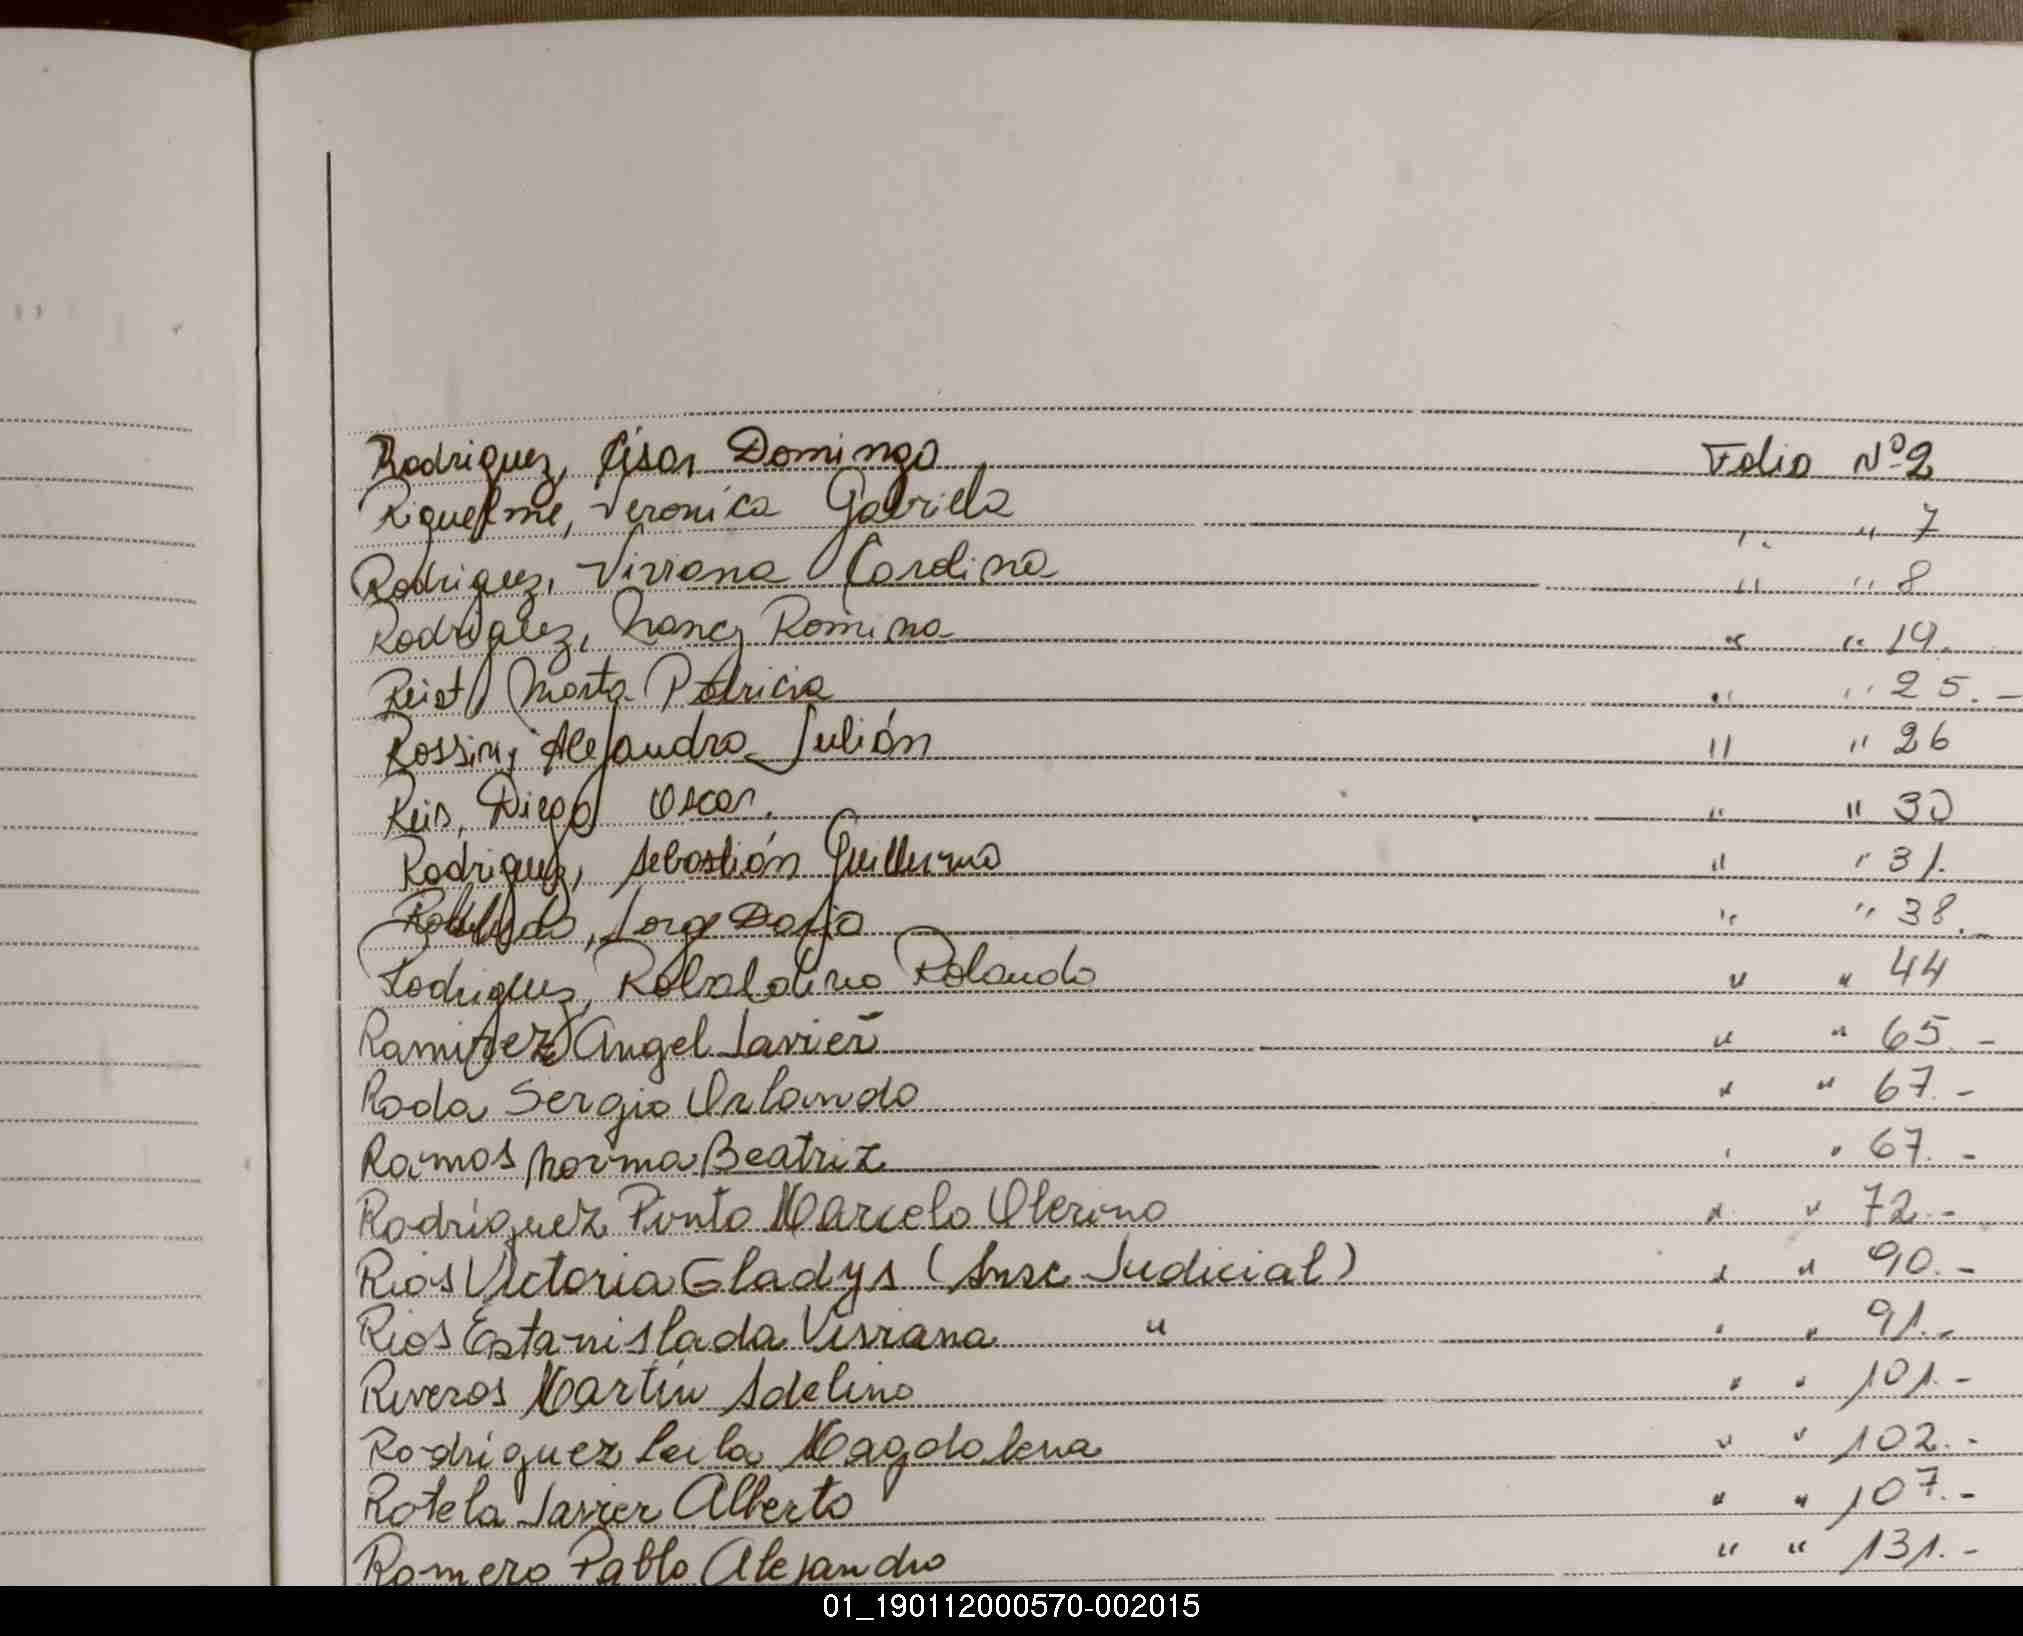 Rodriguez, César Domingo Folio Nº 2
Riquelme, Veronica Gabriela " " 7
Rodriguez, Viviana Carolina " " 8
Rodriguez, Nancy Romina " " 19.
Reist, Marta Patricia " " 25.-
Rossini, Alejandro Julián " " 26
Reis, Diego Oscar. " " 30
Rodriguez, Sebastián Guillermo " " 31.
Jorge Dario " " 38.-
Rodriguez, Rolando " " 44
Ramirez Angel Javier " " 65.-
Roda Sergio Orlando " " 67.-
Ramos Norma Beatriz " " 67.-
Rodríguez Pinto Marcelo Olerino " " 72.-
Rios Victoria Gladys (Insc Judicial) " " 90.-
Rios Estanislada Viviana " " " 91.-
Riveros Martín Adelino " " 101.-
Rodríguez Leila Magdalena " " 102.-
Rotela Javier Alberto " " 107.-
Romero Pablo Alejandro " " 131.-
01_190112000570-002015